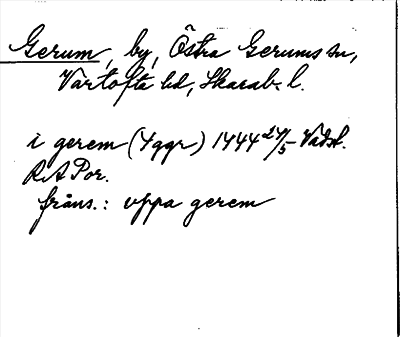 Gerum, by, Östra Gerums sn,
Vartofta hd, Skarab. l.
i gerem (4 ggr) 1444 24/5 Vadst.
RA Por.
fråns.: uppa gerem